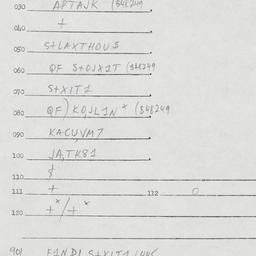 030 APTAJK (S48249
040 +
050 S+LAXTHOUS
060 QF S+OJX1T (S48249
070 S+XIT1
080 QF) KO,JL1N* (S48249
090 KACU,VM7
100 JA,TK81
110 $
111 + 112 0
120 +*/+*
901 F1ND1 S+XIT1